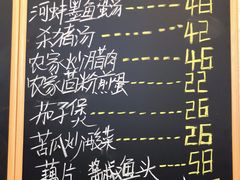 河蚌墨鱼蛋汤 48
杀猪汤 42
农家炒腊肉 46
农家苕粉煎蛋 22
茄子煲 26
苦瓜炒咸菜 26
藕片 酱椒鱼头 58